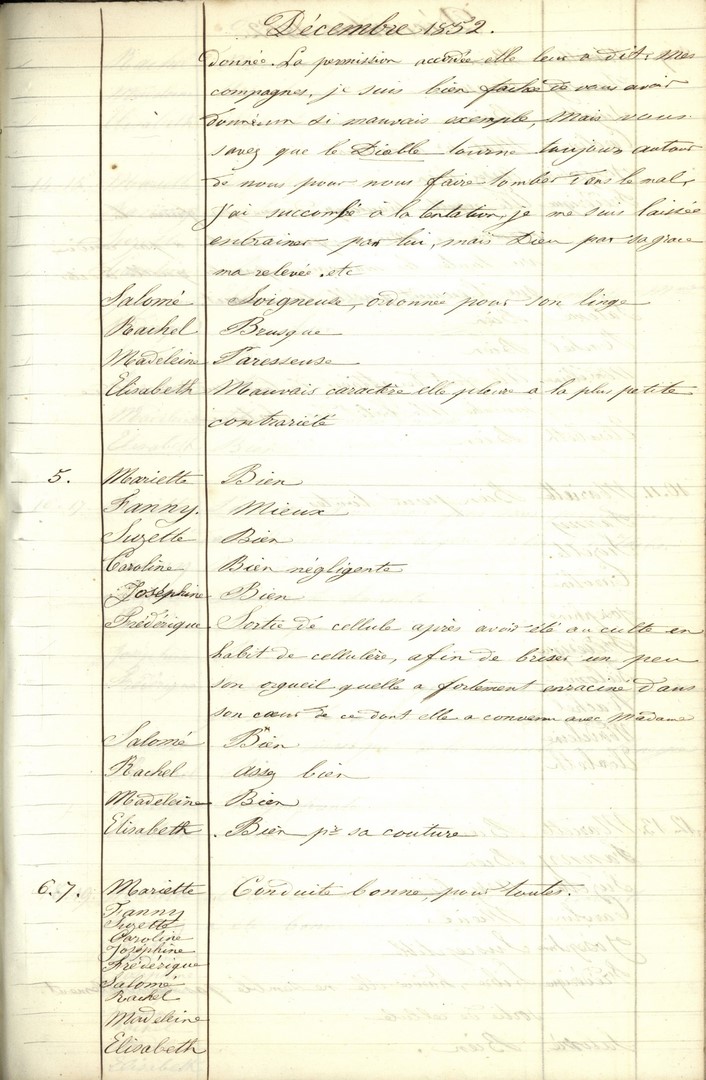 Décembre 1852.
donnée. La permission accordée elle leur a dit, Mes
compagnes, je suis bien fachée de vous avoir
donné un si mauvais exemple, Mais vous
savez que le Diable tourne toujours autour
de nous pour nous faire tomber dans le mal,
j'ai succombé à la tentation, je me suis laissée
entrainer par lui, mais Dieu par sa grace
ma relevée. etc
Salomé Soigneuse, ordonnée pour son linge
Rachel Brusque
Madeleine Paresseuse
Elisabeth Mauvais caractère elle pleure a la plus petite
contrariété
5. Mariette Bien
Fanny. Mieux
Suzette Bien
Caroline Bien négligente
Joséphine Bien
Frédérique Sortie de cellule après avoir été au culte en
habit de cellulère, afin de briser un peu
son orgueil quelle a fortement enraciné dans
son cœur de ce dont elle a convenu avec Madame
Salomé Bien
Rachel assez bien
Madeleine Bien
Elisabeth. Bien pr sa couture
6.7. Mariette Conduite bonne, pour toutes.
Fanny
Suzette
Caroline
Joséphine
Frédérique
Salomé
Rachel
Madeleine
Elisabeth